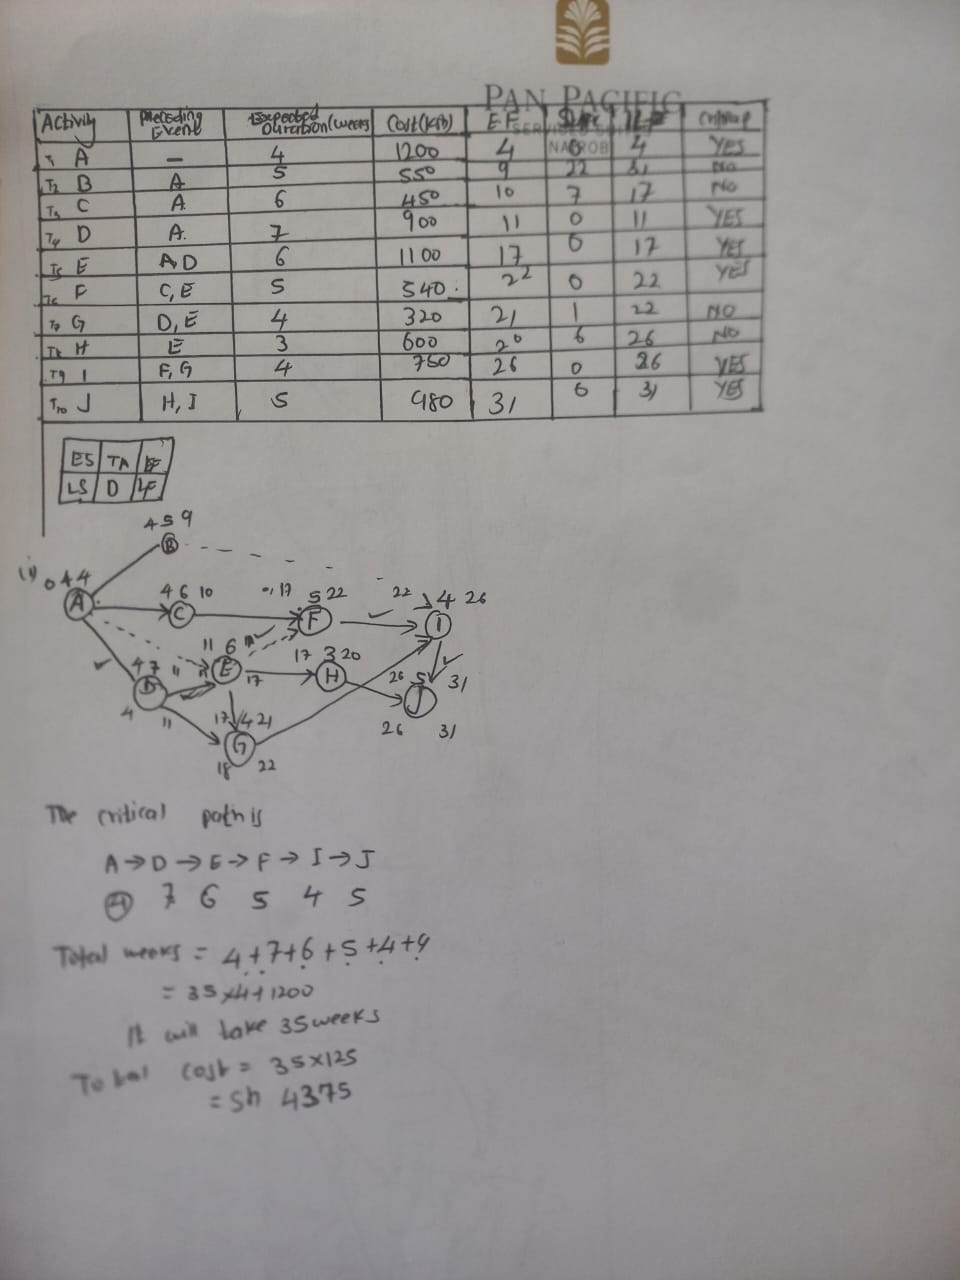 PAN PACIFIC
SERVICED SUITES
NAIROBI
Activity Preceding Event Expected Duration (weeks) Cost (Ksh) E.F Slack LF Critical p
T1 A — 4 1200 4 0 4 YES
T2 B A 5 550 9 22 31 No
T3 C A 6 450 10 7 17 No
T4 D A. 7 900 11 0 11 YES
T5 E A,D 6 1100 17 0 17 YES
T6 F C,E 5 540. 22 0 22 YES
T7 G D,E 4 320 21 1 22 NO
T8 H E 3 600 20 6 26 No
T9 I F,G 4 750 26 0 26 YES
T10 J H,I 5 980 31 0 31 YES
ES TA EF
LS D LF
4 5 9
B
0 4 4
A
4 6 10
C
17
5 22
F
22 4 26
I
11 6
E
17
17 3 20
H
4 7 11
D
4 11
17 4 21
G
18 22
26 5 31
J
26 31
The critical path is
A → D → E → F → I → J
4 7 6 5 4 5
Total weeks = 4+7+6+5+4+9
= 35x4+1200
It will take 35 weeks
Total cost = 35x125
= Sh 4375